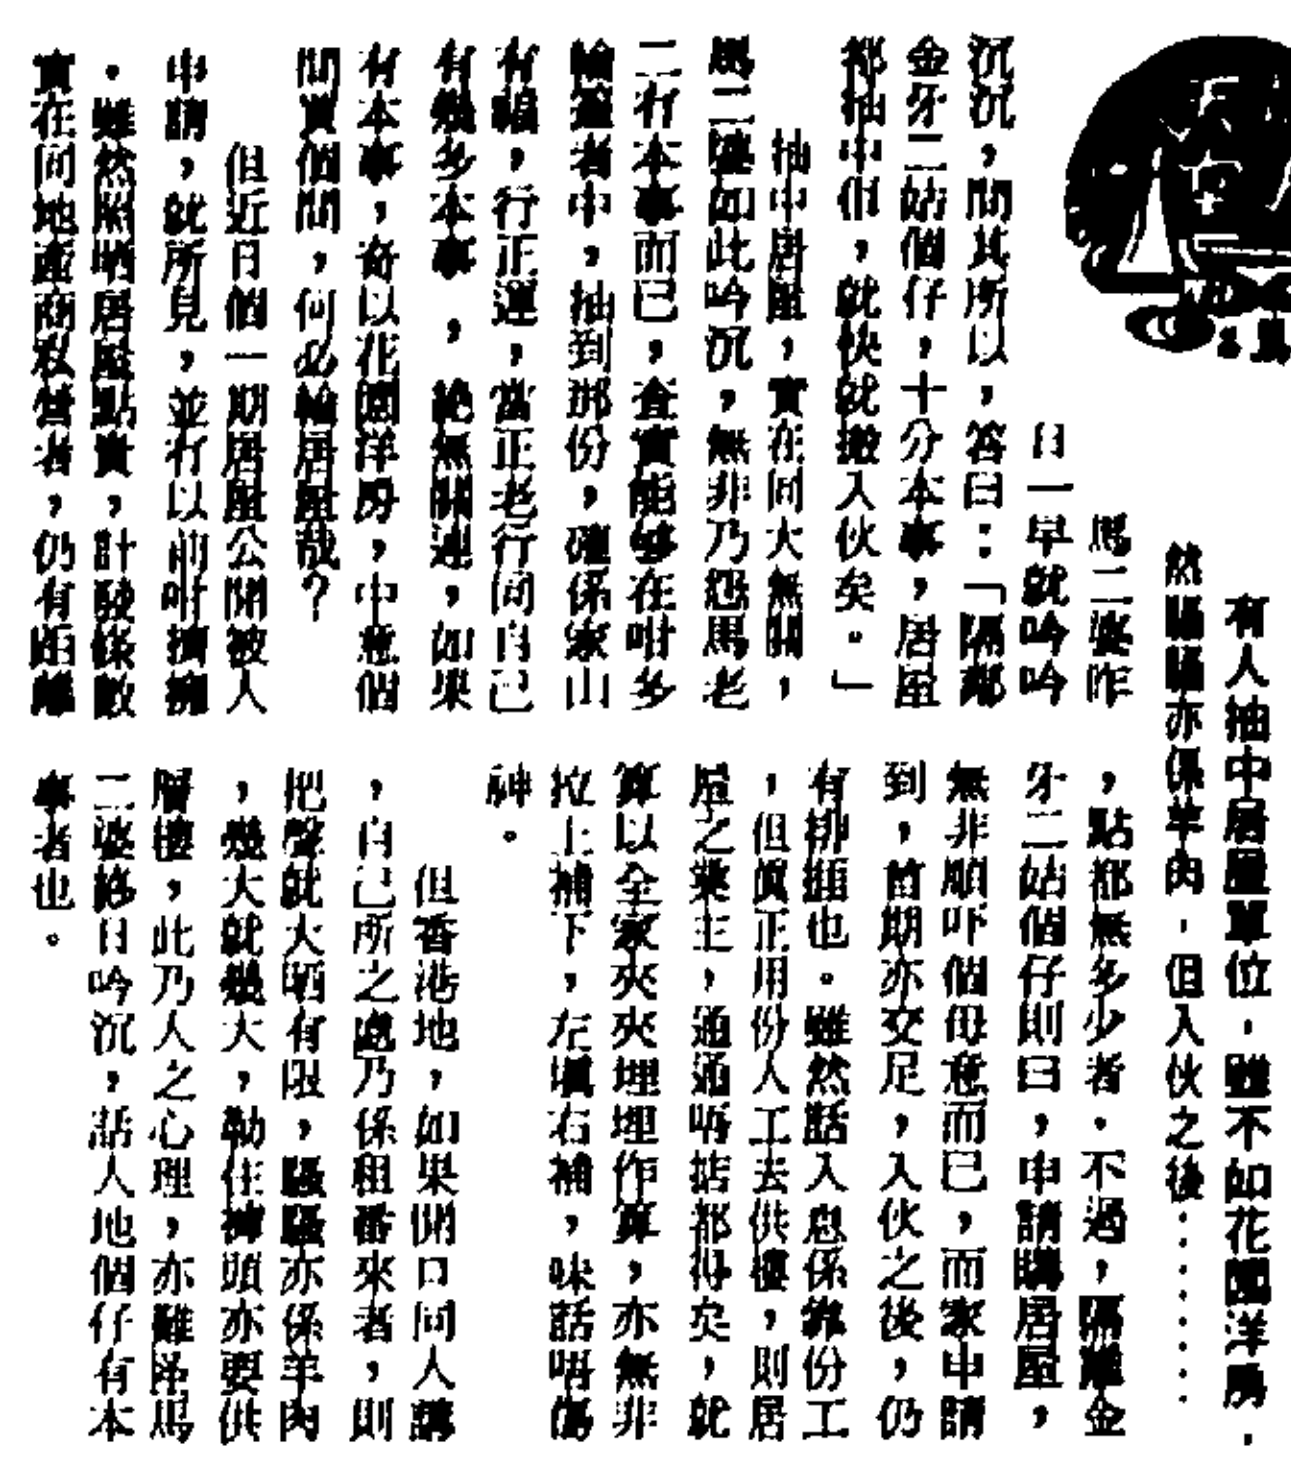 有人抽中居屋單位，雖不如花園洋房，
然騷騷亦係羊肉，但入伙之後………
馬二婆昨
日一早就吟吟
沉沉，問其所以，答曰：「隔鄰
金牙二姑個仔，十分本事，居屋
都抽中佢，就快就搬入伙矣。」
抽中居屋，實在同大無關，
馬二婆如此吟沉，無非乃怨馬老
二冇本事而已，查實能够在咁多
輪籌者中，抽到那份，確係家山
有福，行正運，當正老行同自己
有幾多本事，絶無關連，如果
有本事，奇以花園洋房，中意個
間買個間，何必輪居屋哉？
但近日個一期居屋公開被人
申請，就所見，並冇以前咁擠擁
。雖然照晒居屋點賣，計駛條數
實在同地產商私營者，仍有距離
，點都無多少者。不過，隔離金
牙二姑個仔則曰，申請購居屋，
無非順吓個母意而已，而家申請
到，首期亦交足，入伙之後，仍
有排頭也。雖然話入息係靠份工
，但眞正用份人工去供樓，則居
屋之業主，通通唔掂都得矣，就
算以全家夾夾埋埋作算，亦無非
拉上補下，左塡右補，味話唔傷
神。
但香港地，如果開口同人講
，自己所之處乃係租番來者，則
把聲就大晒有限，騷騷亦係羊肉
，幾大就幾大，勒住褲頭亦要供
層樓，此乃人之心理，亦難怪馬
二婆終日吟沉，話人地個仔有本
事者也。